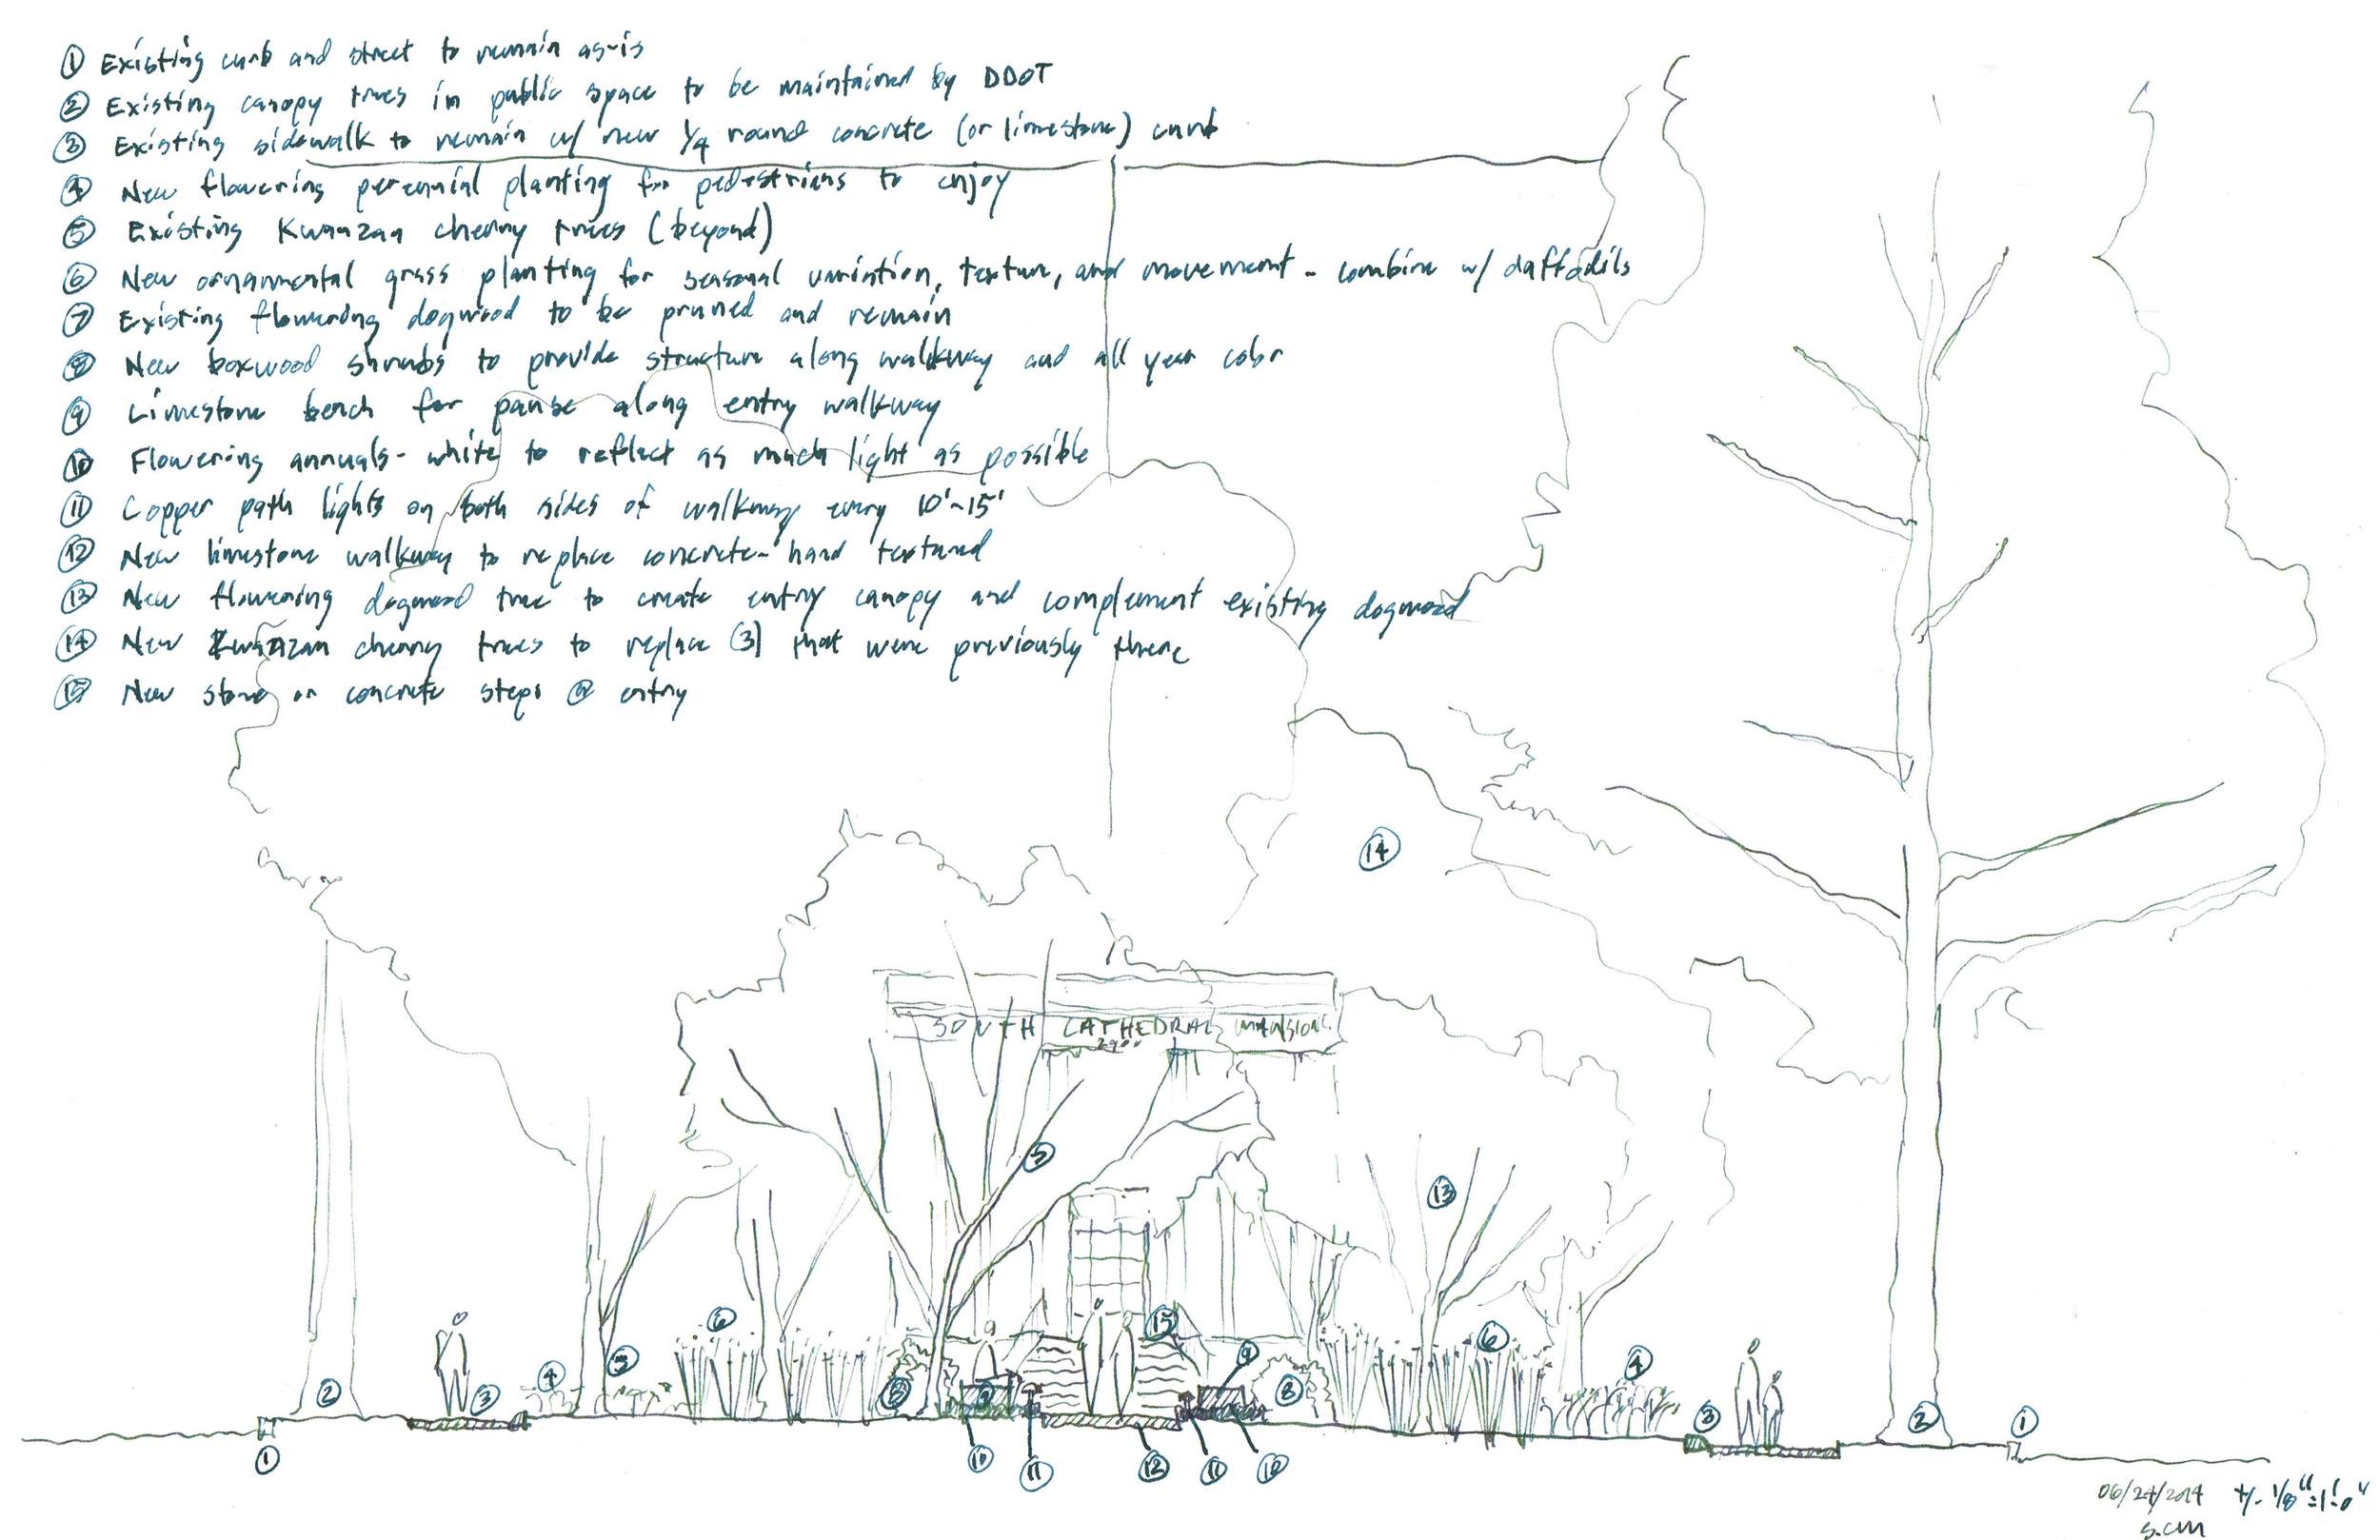 ① Existing curb and street to remain as-is
② Existing canopy trees in public space to be maintained by DDOT
③ Existing sidewalk to remain w/ new 1/4 round concrete (or limestone) curb
④ New flowering perennial planting for pedestrians to enjoy
⑤ Existing Kwanzan cherry trees (beyond)
⑥ New ornamental grass planting for seasonal variation, texture, and movement - combine w/ daffodils
⑦ Existing flowering dogwood to be pruned and remain
⑧ New boxwood shrubs to provide structure along walkway and all year color
⑨ Limestone bench for pause along entry walkway
⑩ Flowering annuals - white to reflect as much light as possible
⑪ Copper path lights on both sides of walkway every 10'-15'
⑫ New limestone walkway to replace concrete - hand textured
⑬ New flowering dogwood tree to create entry canopy and complement existing dogwood
⑭ New Kwanzan cherry trees to replace (3) that were previously there
⑮ New stone or concrete steps @ entry
⑭
SOUTH CATHEDRAL MANSIONS
2900
⑬
⑥ ⑮ ⑥
⑨ ④
② ③ ④ ⑤ ⑧ ⑨ ⑧ ③ ② ①
① ⑩ ⑪ ⑫ ⑪ ⑩
06/24/2014 +/- 1/8" = 1'-0"